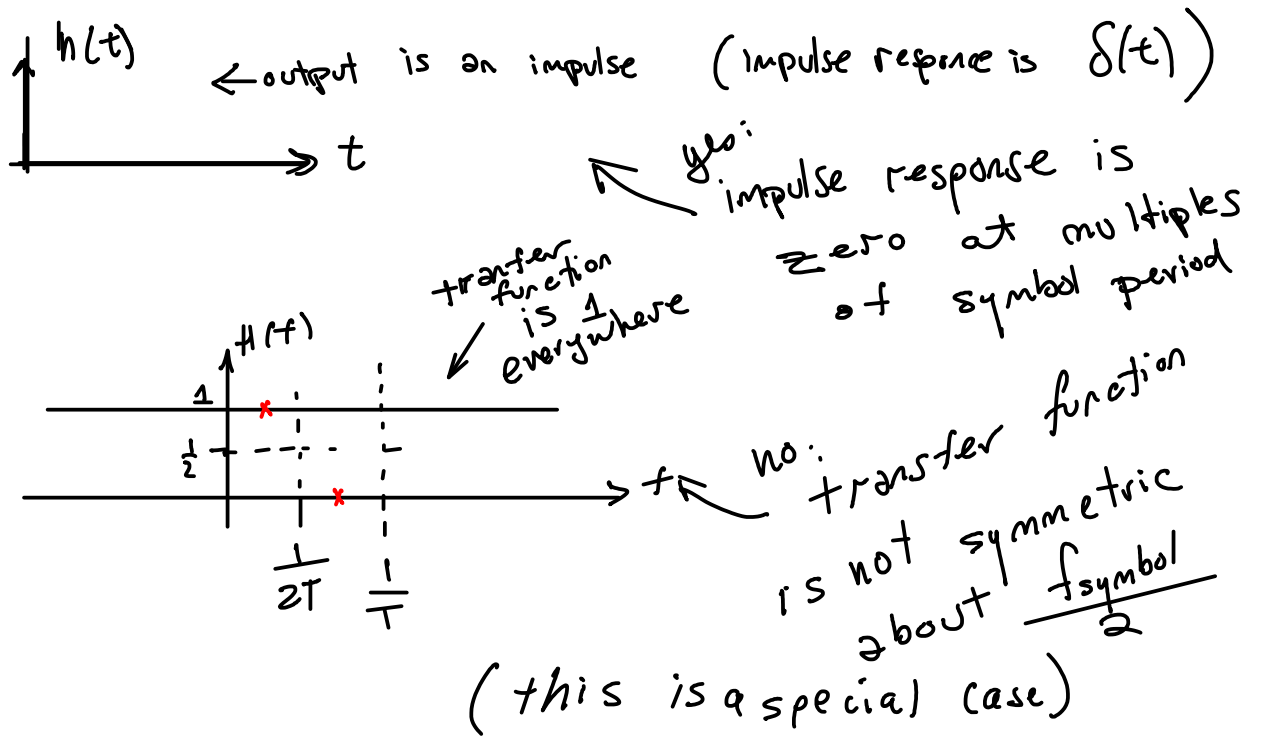 h(t)
← output is an impulse (impulse response is δ(t))
t
yes:
impulse response is
zero at multiples
of symbol period
transfer
function
is 1
everywhere
H(f)
1
1/2
f
1/2T
1/T
no:
transfer function
is not symmetric
about fsymbol/2
(this is a special case)